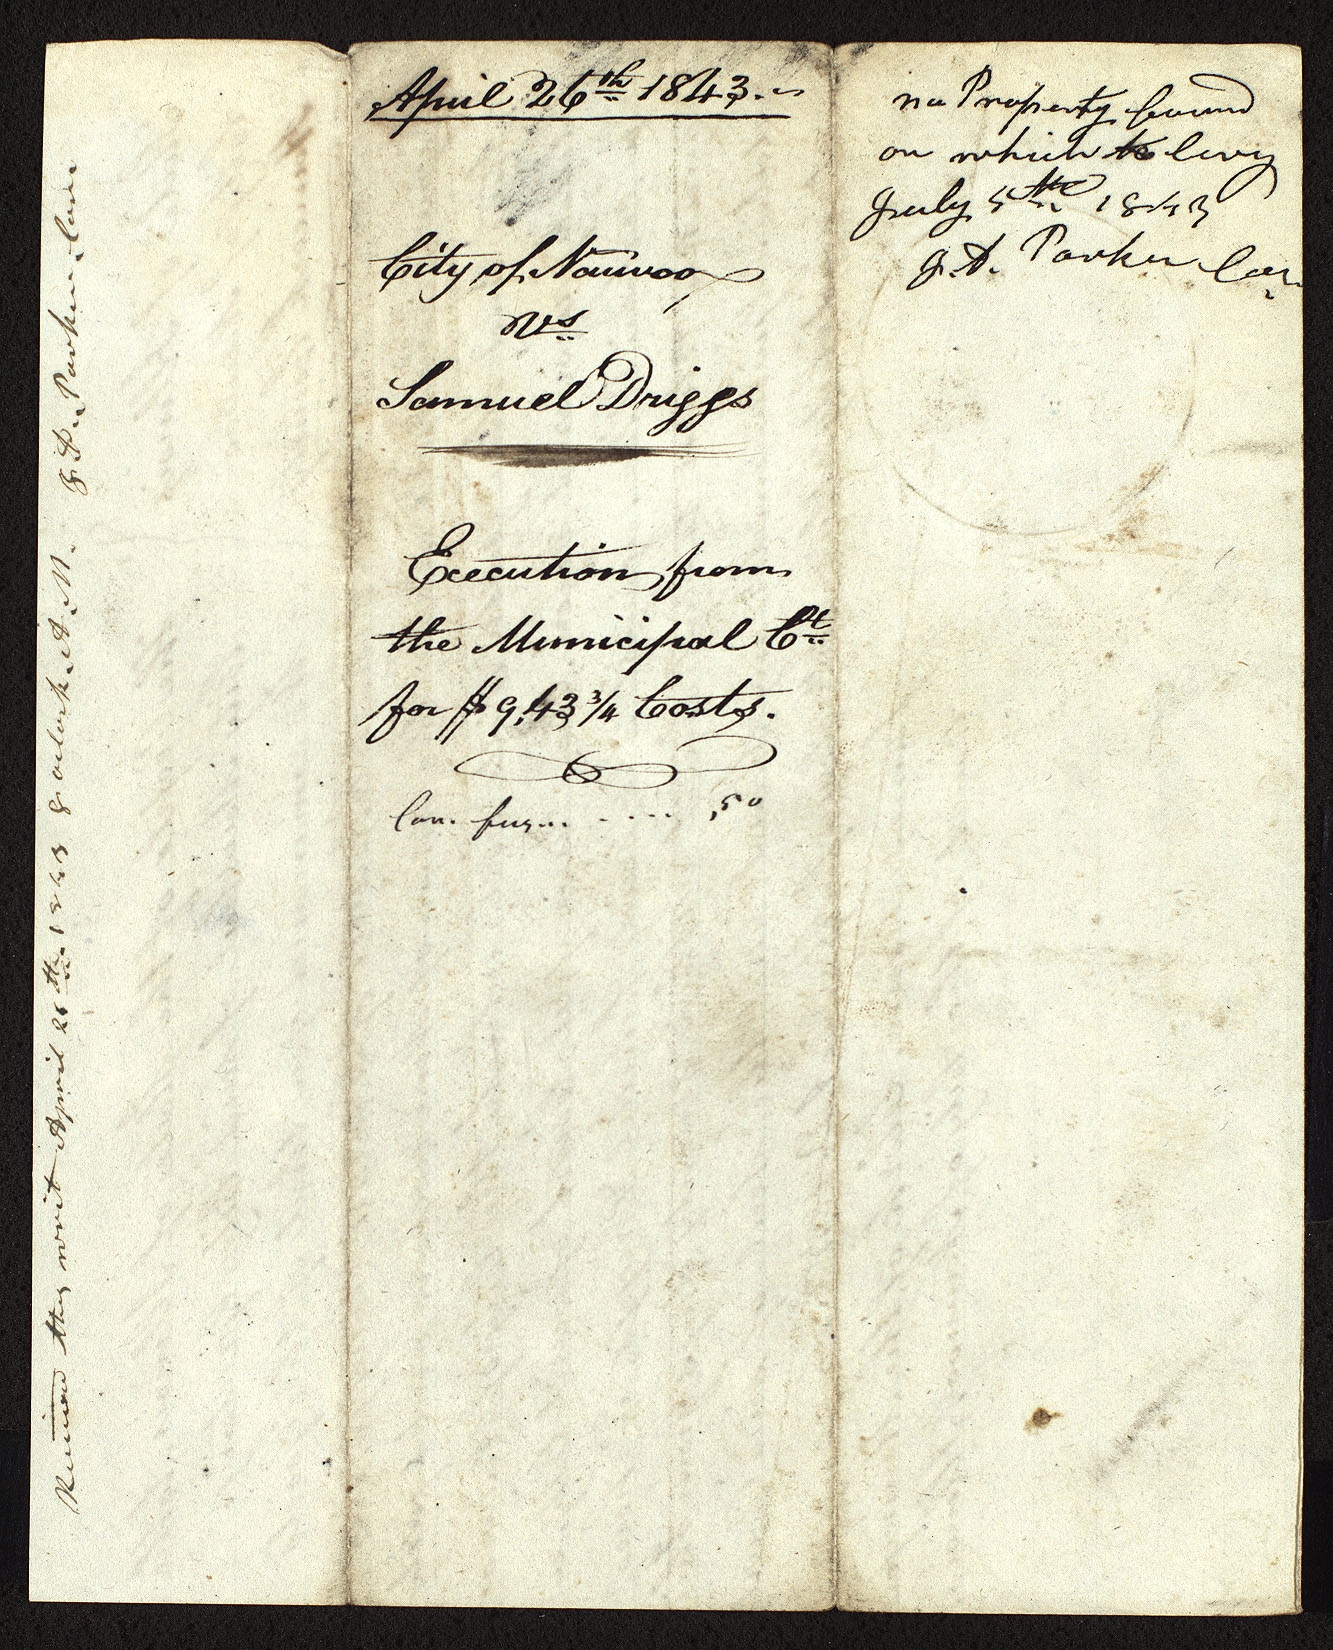 Received this writ April 26th. 1843 8 oclock. A. M. J. D. Parker. Con.
April 26th 1843.
City of Nauvoo
vs
Samuel Driggs
Execution from
the Municipal Ct
for $9,43 3/4 Costs.
Con. fees... .... ,50
no Property found
on which to levy
July 5th 1843
J. D. Parker Con.